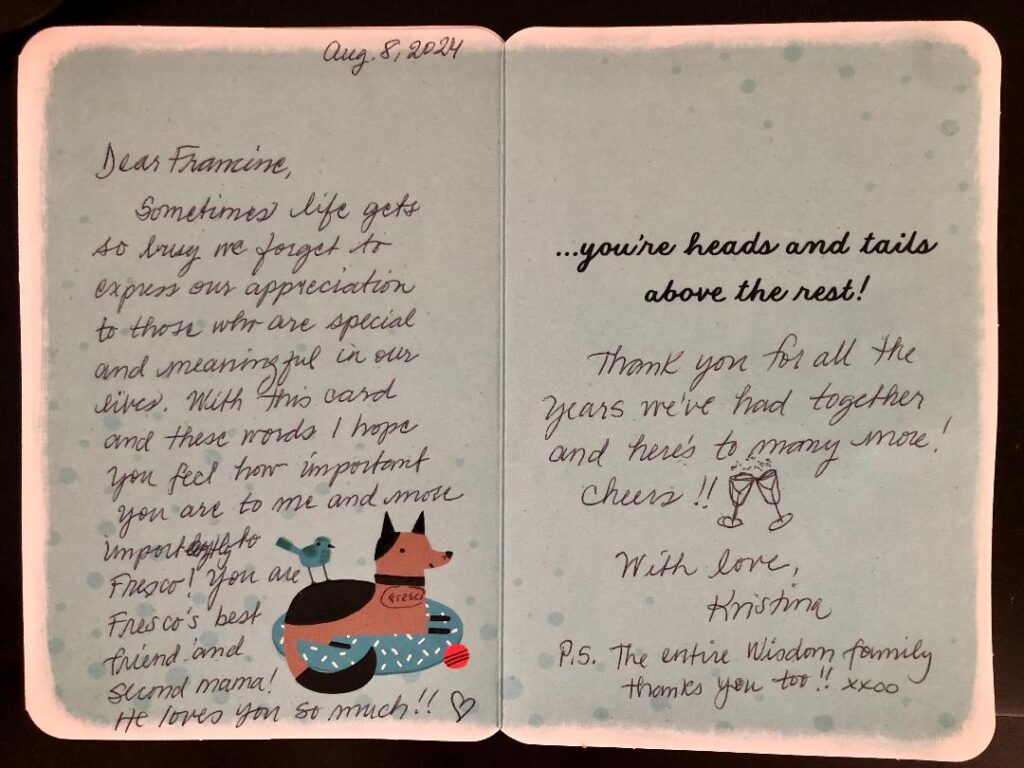 Aug. 8, 2024
Dear Francine,
Sometimes life gets
so busy we forget to
express our appreciation
to those who are special
and meaningful in our
lives. With this card
and these words I hope
you feel how important
you are to me and more
importantly to
Fresco! You are
Fresco's best
friend and
second mama!
He loves you so much!!
Fresco
...you're heads and tails
above the rest!
Thank you for all the
years we've had together
and here's to many more!
Cheers!!
With love,
Kristina
P.S. The entire Wisdom family
thanks you too!! xxoo